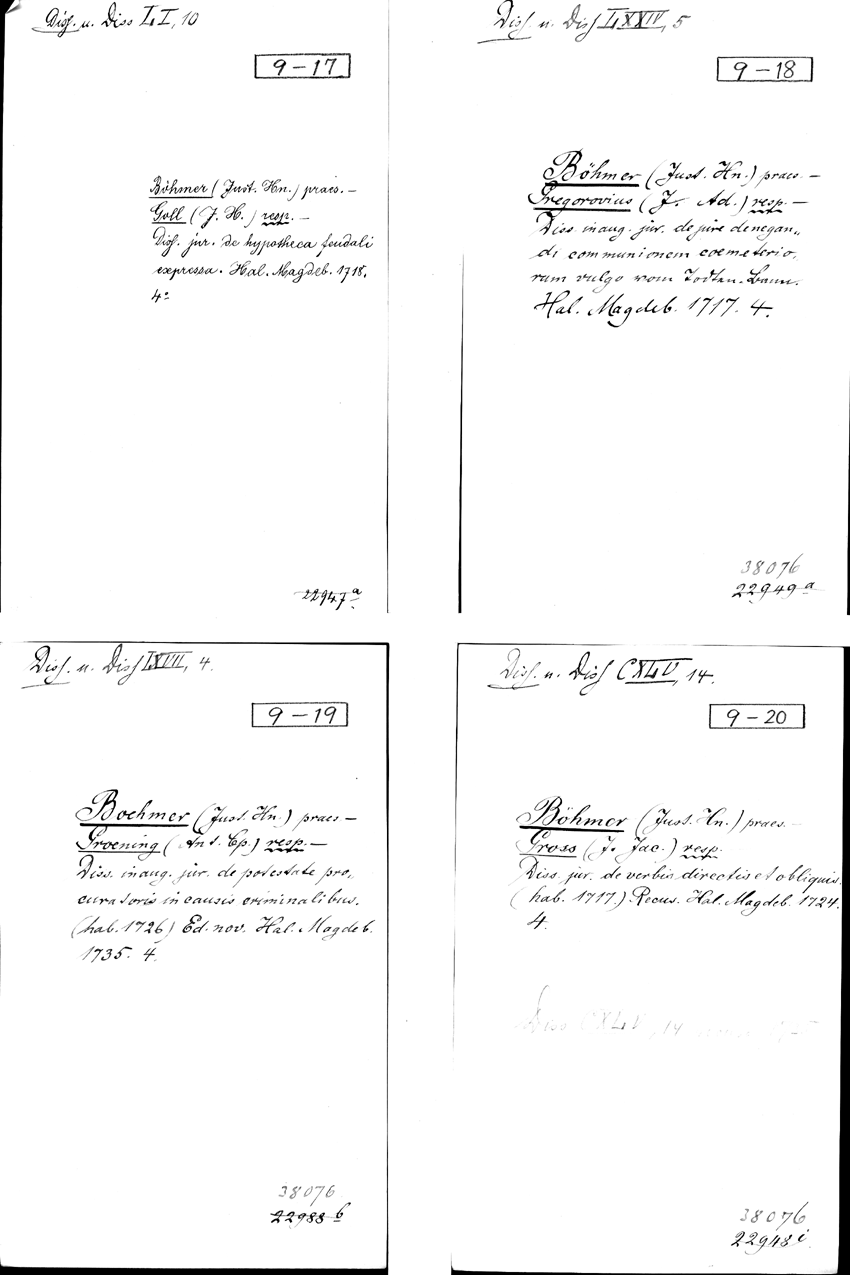 Diss. u. Diss LI, 10
9-17
Böhmer (Just. Hn.) praes. —
Goll (J. H.) resp. —
Diss. jur. de hypotheca feudali
expressa. Hal. Magdeb. 1718.
4º
22947a
Diss. u. Diss LXXIV, 5
9-18
Böhmer (Just. Hn.) praes. —
Gregorovius (J. Ad.) resp. —
Diss. inaug. jur. de jure denegan„
di communionem coemeterio„
rum vulgo vom Todten-Bann.
Hal. Magdeb. 1717. 4.
38076
22949a
Diss. u. Diss LXVII, 4.
9-19
Boehmer (Just. Hn.) praes —
Groening (Ant. Cp.) resp. —
Diss. inaug. jur. de potestate pro„
curatoris in causis criminalibus.
(hab. 1726) Ed. nov. Hal. Magdeb.
1735. 4.
38076
22988b
Diss. u. Diss CXLV, 14.
9-20
Böhmer (Just. Hn.) praes. —
Gross (J. Jac.) resp.
Diss. jur. de verbis directis et obliquis.
(hab. 1717.) Recus. Hal. Magdeb. 1724.
4.
Diss CXLV, 14
38076
22948i